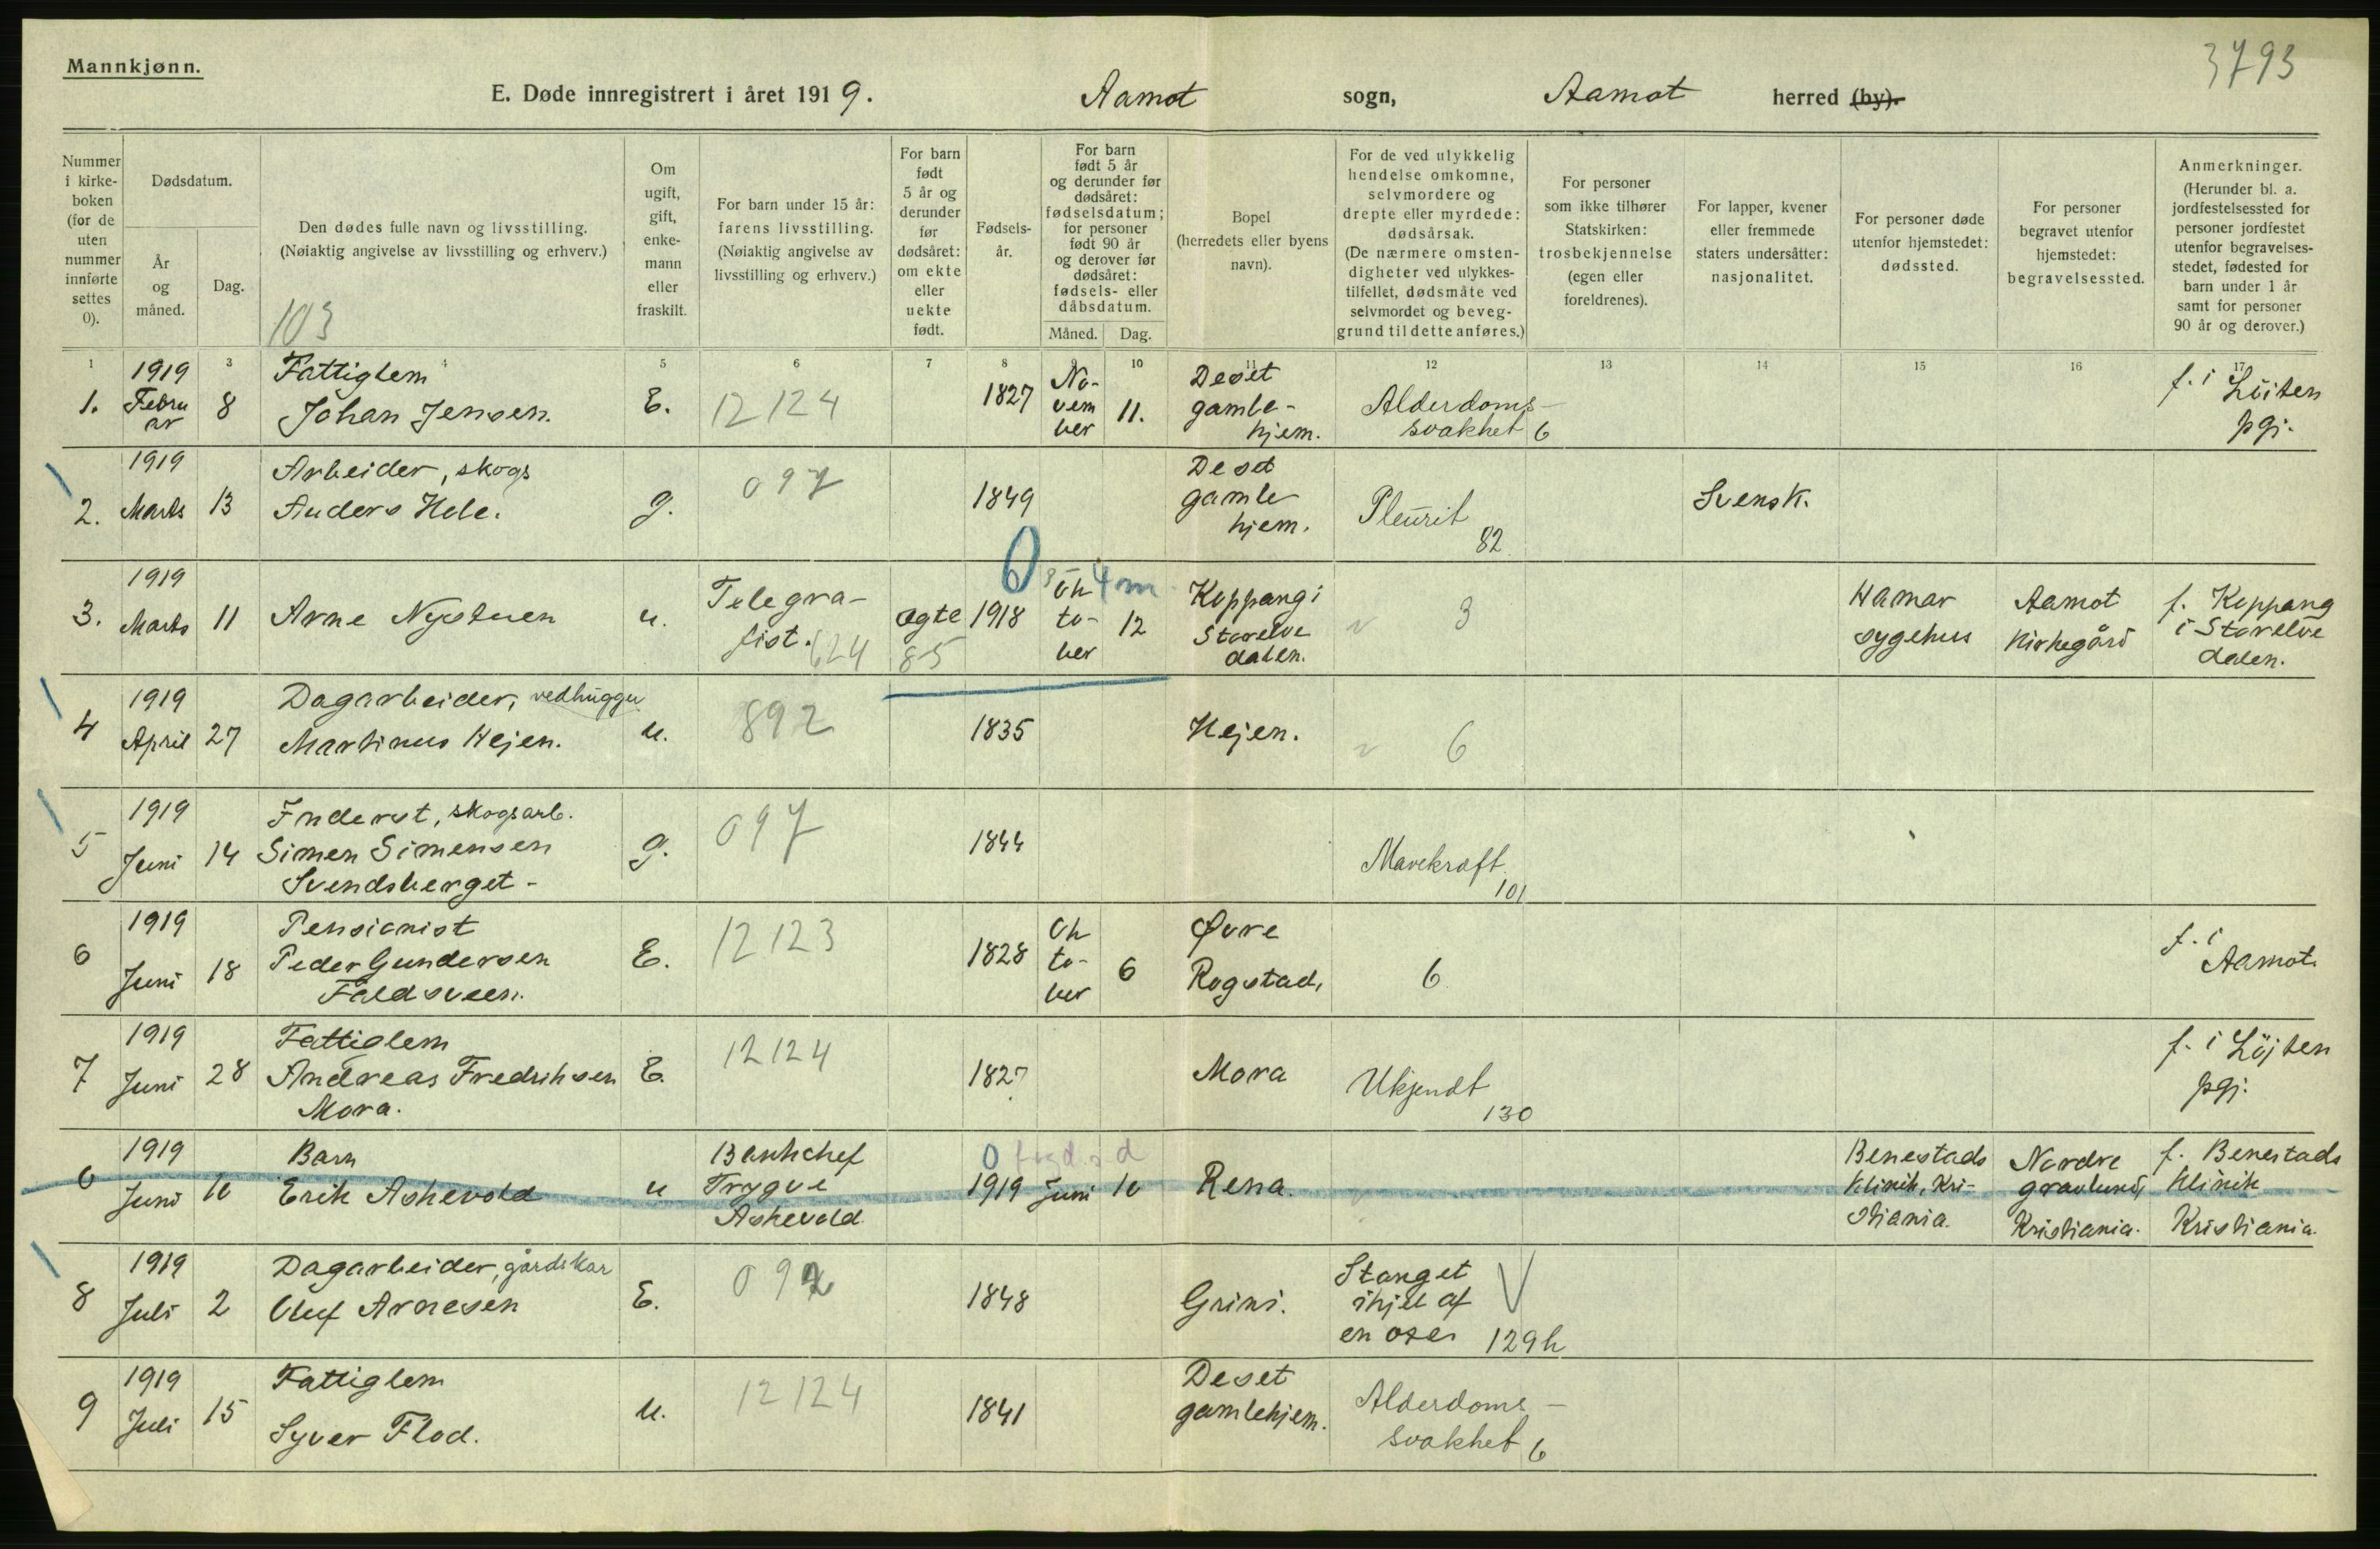 3793
Mannkjønn.
E. Døde innregistrert i året 1919. Aamot sogn, Aamot herred (by).
Nummer i kirke-boken (for de uten nummer innførte settes 0).
Dødsdatum.
År og måned.
Dag.
Den dødes fulle navn og livsstilling.
(Nøiaktig angivelse av livsstilling og erhverv.)
103
Om ugift, gift, enke-mann eller fraskilt.
For barn under 15 år:
farens livsstilling.
(Nøiaktig angivelse av
livsstilling og erhverv.)
For barn født 5 år og derunder før dødsåret: om ekte eller uekte født.
Fødsels-år.
For barn
født 5 år
og derunder før
dødsåret:
fødselsdatum;
for personer
født 90 år
og derover før
dødsåret:
fødsels- eller
dåbsdatum.
Måned. Dag.
Bopel
(herredets eller byens
navn).
For de ved ulykkelig
hendelse omkomne,
selvmordere og
drepte eller myrdede:
dødsårsak.
(De nærmere omsten-
digheter ved ulykkes-
tilfellet, dødsmåte ved
selvmordet og beveg-
grund til dette anføres.)
For personer
som ikke tilhører
Statskirken:
trosbekjennelse
(egen eller
foreldrenes).
For lapper, kvener
eller fremmede
staters undersåtter:
nasjonalitet.
For personer døde
utenfor hjemstedet:
dødssted.
For personer
begravet utenfor
hjemstedet:
begravelsessted.
Anmerkninger.
(Herunder bl. a.
jordfestelsessted for
personer jordfestet
utenfor begravelses-
stedet, fødested for
barn under 1 år
samt for personer
90 år og derover.)
1 3 4 5 6 7 8 9 10 11 12 13 14 15 16 17
1. 1919 Februar 8 Fattiglem Johan Jensen. E. 12124 1827 November 11. Deset gamle-hjem. Alderdoms-svakhet 6 f. i Löiten pgj.
2. 1919 Marts 13 Arbeider, skogs Anders Hole. g. 097 1849 Deset gamle hjem. Pleurit 82 Svensk.
3. 1919 Marts 11 Arne Nystuen u. Telegra-fist. 624 ægte 85 1918 0 4 m Oktober 12 Koppang i Storelvedalen. 3 Hamar sygehus Aamot kirkegård f. Koppang i Storelvedalen.
4 1919 April 27 Dagarbeider, vedhugger Martinus Hejen. u. 892 1835 Hejen. 6
5 1919 Juni 14 Inderst, skogsarb. Simen Simensen Svendsberget- g. 097 1844 Mavekræft 101
6 1919 Juni 18 Pensionist Peder Gundersen Faldsveen. E. 12123 1828 Oktober 6 Øvre Rogstad, 6 f. i Aamot.
7 1919 Juni 28 Fattiglem Andreas Fredriksen Mora. E. 12124 1827 Mora Ukjendt 130 f. i Löjten pgj.
0 1919 Juni 10 Barn Erik Askevold u Bankchef Trygve Askevold 0 1919 Juni 10 Rena. Benestads Klinik, Kristiania. Nordre gravlund, Kristiania. f. Benestads Klinik Kristiania.
8 1919 Juli 2 Dagarbeider, gårdskar Oluf Arnesen E. 092 1848 Grini. Stanget ihjel af en oxe. 129h
9 1919 Juli 15 Fattiglem Syver Flod. u. 12124 1841 Deset gamlehjem. Alderdoms-svakhet 6